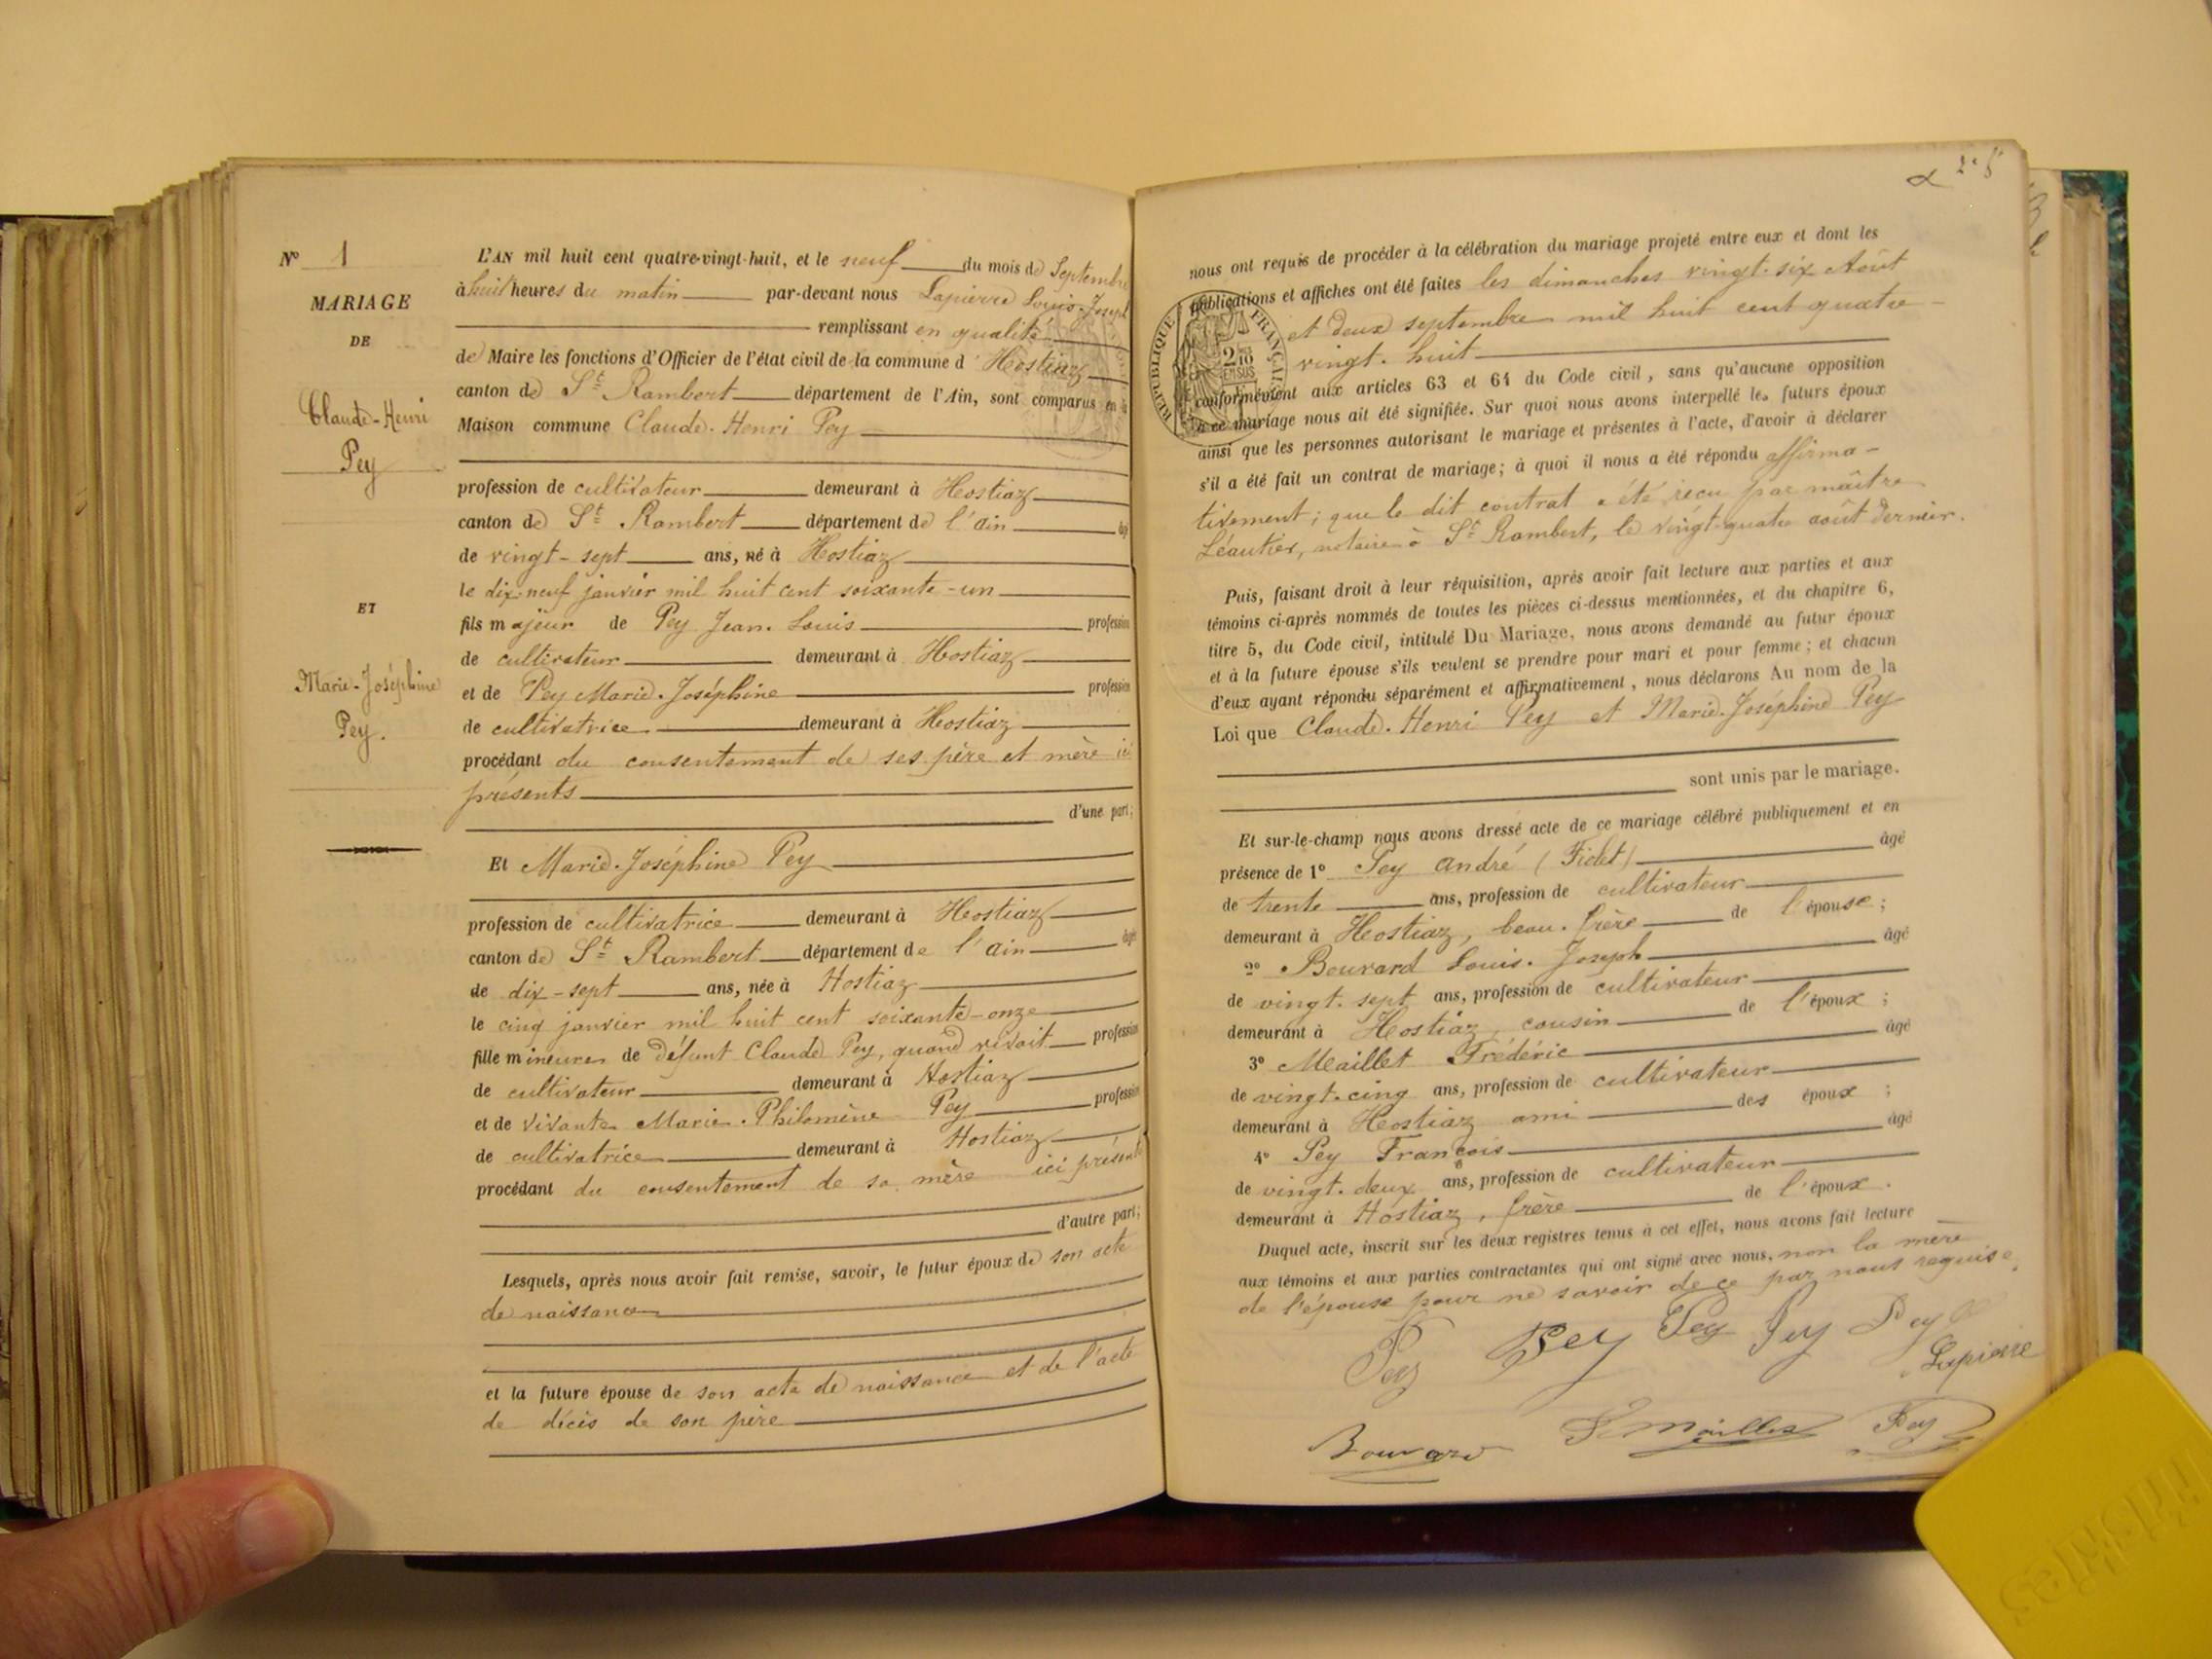 N° 1
MARIAGE
DE
Claude-Henri
Pey
ET
Marie-Joséphine
Pey.
L'AN mil huit cent quatre-vingt-huit, et le neuf du mois de Septembre
à huit heures du matin par-devant nous Lapierre Louis-Joseph
remplissant en qualité
de Maire les fonctions d'Officier de l'état civil de la commune d'Hostiaz
canton de St Rambert département de l'Ain, sont comparus en la
Maison commune Claude-Henri Pey
profession de cultivateur demeurant à Hostiaz
canton de St Rambert département de l'ain âgé
de vingt-sept ans, né à Hostiaz
le dix-neuf janvier mil huit cent soixante-un
fils majeur de Pey Jean-Louis profession
de cultivateur demeurant à Hostiaz
et de Pey Marie-Joséphine profession
de cultivatrice demeurant à Hostiaz
procédant du consentement de ses père et mère ici
présents
d'une part;
Et Marie-Joséphine Pey
profession de cultivatrice demeurant à Hostiaz
canton de St Rambert département de l'ain âgée
de dix-sept ans, née à Hostiaz
le cinq janvier mil huit cent soixante-onze
fille mineure de défunt Claude Pey, quand vivait profession
de cultivateur demeurant à Hostiaz
et de vivante Marie-Philomène Pey profession
de cultivatrice demeurant à Hostiaz
procédant du consentement de sa mère ici présente
d'autre part;
Lesquels, après nous avoir fait remise, savoir, le futur époux de son acte
de naissance
et la future épouse de son acte de naissance et de l'acte
de décès de son père
nous ont requis de procéder à la célébration du mariage projeté entre eux et dont les
publications et affiches ont été faites les dimanches vingt-six Août
et deux septembre mil huit cent quatre-
vingt-huit
RÉPUBLIQUE FRANÇAISE
conformément aux articles 63 et 64 du Code civil, sans qu'aucune opposition
à ce mariage nous ait été signifiée. Sur quoi nous avons interpellé les futurs époux
ainsi que les personnes autorisant le mariage et présentes à l'acte, d'avoir à déclarer
s'il a été fait un contrat de mariage; à quoi il nous a été répondu affirma-
tivement; que le dit contrat a été reçu par maître
Léautier, notaire à St Rambert, le vingt-quatre août dernier.
Puis, faisant droit à leur réquisition, après avoir fait lecture aux parties et aux
témoins ci-après nommés de toutes les pièces ci-dessus mentionnées, et du chapitre 6,
titre 5, du Code civil, intitulé Du Mariage, nous avons demandé au futur époux
et à la future épouse s'ils veulent se prendre pour mari et pour femme; et chacun
d'eux ayant répondu séparément et affirmativement, nous déclarons Au nom de la
Loi que Claude-Henri Pey et Marie-Joséphine Pey
sont unis par le mariage.
Et sur-le-champ nous avons dressé acte de ce mariage célébré publiquement et en
présence de 1° Pey André (Fidet) âgé
de trente ans, profession de cultivateur
demeurant à Hostiaz, beau-frère de l'épouse;
2° Bouvard Louis-Joseph âgé
de vingt-sept ans, profession de cultivateur
demeurant à Hostiaz, cousin de l'époux;
3° Maillet Frédéric âgé
de vingt-cinq ans, profession de cultivateur
demeurant à Hostiaz ami des époux;
4° Pey François âgé
de vingt-deux ans, profession de cultivateur
demeurant à Hostiaz, frère de l'époux.
Duquel acte, inscrit sur les deux registres tenus à cet effet, nous avons fait lecture
aux témoins et aux parties contractantes qui ont signé avec nous, non la mère
de l'épouse pour ne savoir de ce par nous requise.
Pey Pey Pey Pey Pey
Lapierre
Bouvard F Maillet Pey